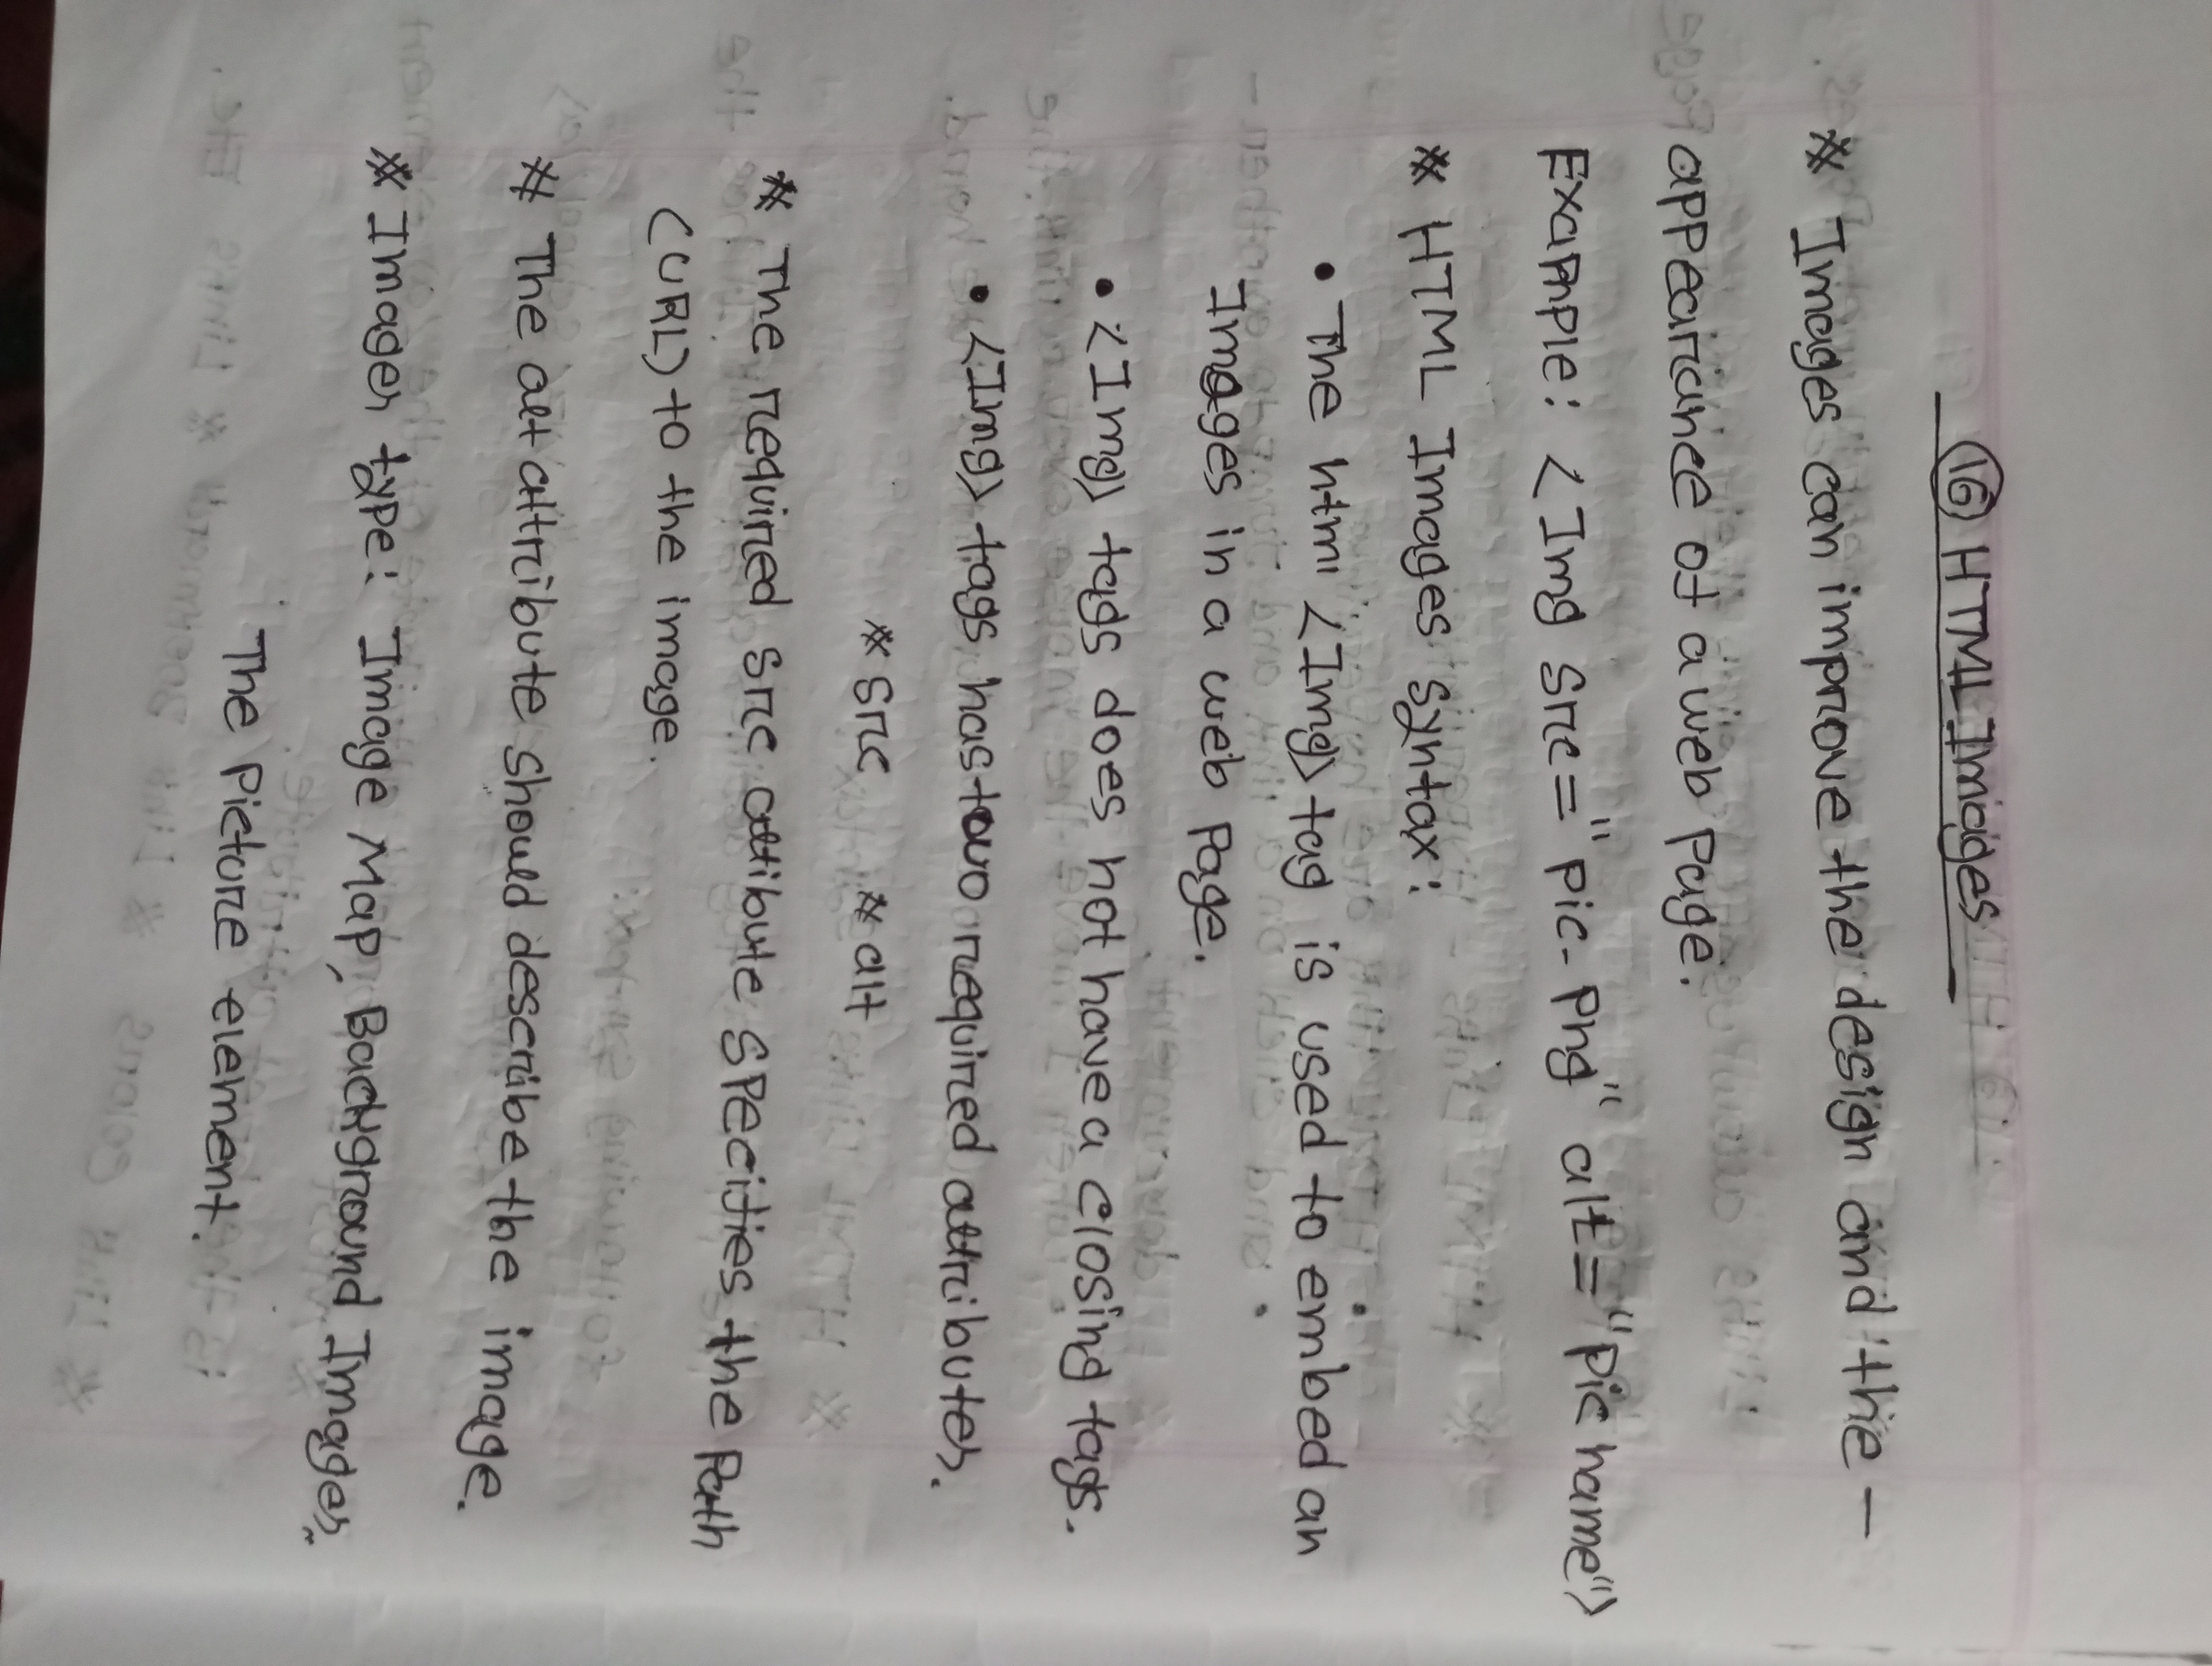 ⑯ HTML Images
* Images can improve the design and the –
appearance of a web page.
Example: <Img src="pic. png" alt="pic name">
* HTML Images syntax:
• The html <Img> tag is used to embed an
Images in a web page.
• <Img> tags does not have a closing tags.
• <Img> tags has two required attributes.
* src * alt
* The required src attibute specifies the path
(URL) to the image.
* The alt attribute should describe the image.
* Images type: Image Map, Background Images,
The Picture element.